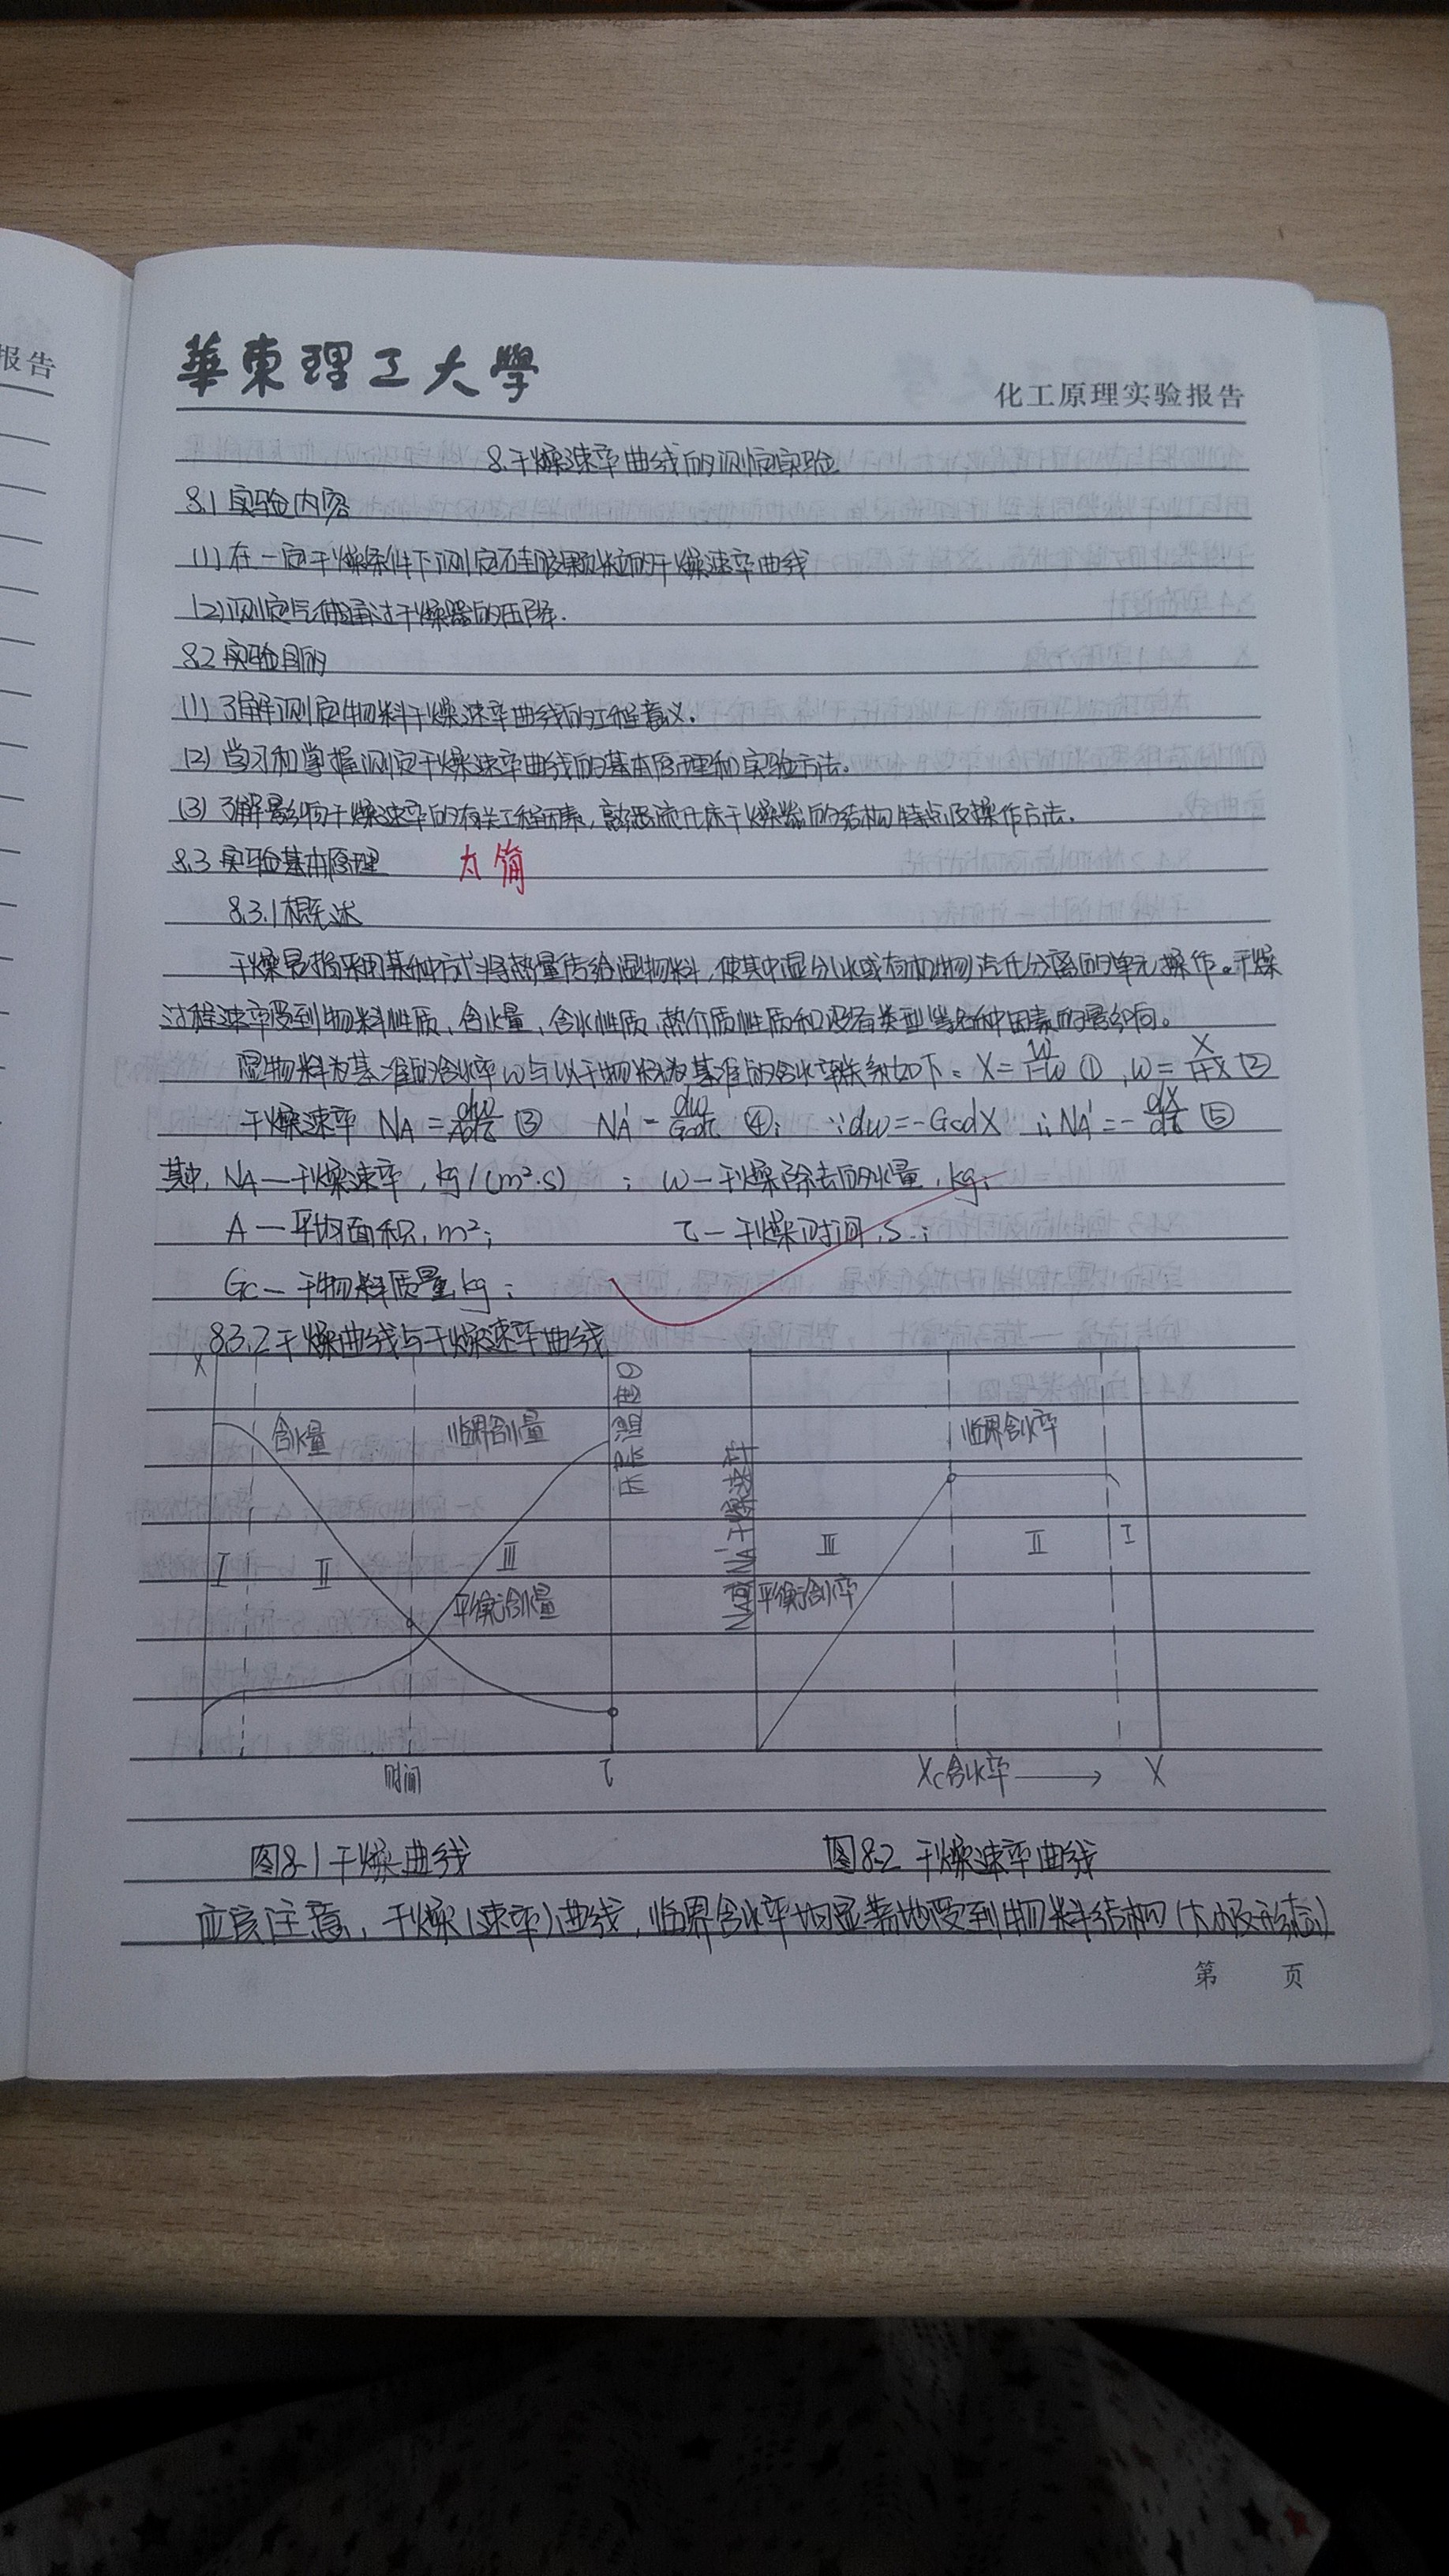 报告
華東理工大學
化工原理实验报告
8.干燥速率曲线的测定实验
8.1实验内容
(1)在一定干燥条件下测定硅胶颗粒的干燥速率曲线
(2)测定气体通过干燥器的压降.
8.2实验目的
(1)了解测定物料干燥速率曲线的工程意义.
(2)学习和掌握测定干燥速率曲线的基本原理和实验方法.
(3)了解影响干燥速率的有关工程因素,熟悉流化床干燥器的结构特点及操作方法.
8.3实验基本原理 太简
8.3.1概述
干燥是指采用某种方式将热量传给湿物料,使其中湿分(水或有机物)汽化分离的单元操作。干燥
过程速率受到物料性质,含水量,含水性质,热介质性质和设备类型等各种因素的影响。
湿物料为基准的含水率w与以干物料为基准的含水率关系如下: X=w/1-w ①,w=X/1+X ②
干燥速率 NA=dw/Adτ ③ NA'=dw/Gcdτ ④; ∵dw=-GcdX ∴NA'=-dX/dτ ⑤
其中,NA—干燥速率,kg/(m²·s) ; w—干燥除去的水量,kg;
A—平均面积,m²; τ—干燥时间,s.;
Gc—干物料质量,kg;
8.3.2干燥曲线与干燥速率曲线
X
含水量
临界含水量
床层温度θ
I
II
III
平衡含水量
时间
τ
NA或NA'干燥速率
临界含水率
III
II
I
平衡含水率
Xc含水率
X
图8.1干燥曲线
图8.2 干燥速率曲线
应该注意,干燥(速率)曲线,临界含水率均显著地受到物料结构(大小及形态)
第 页